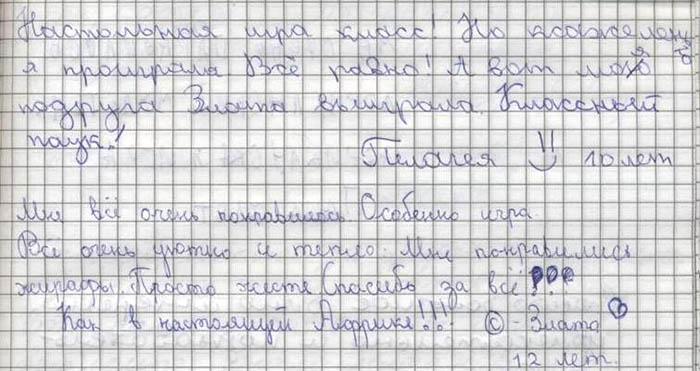 Настольная игра класс! Но к сожеленю
я проиграла Всё равно! А вот моя
подруга Злата выиграла. Классный
паук!
Пелагея !! 10 лет
Мне всё очень понравилось. Особенно игра.
Всё очень уютно и тепло. Мне понравились
жирафы. Просто жесть Спасибо за всё!!!
Как в настоящей Африке!!! © - Злата
12 лет.